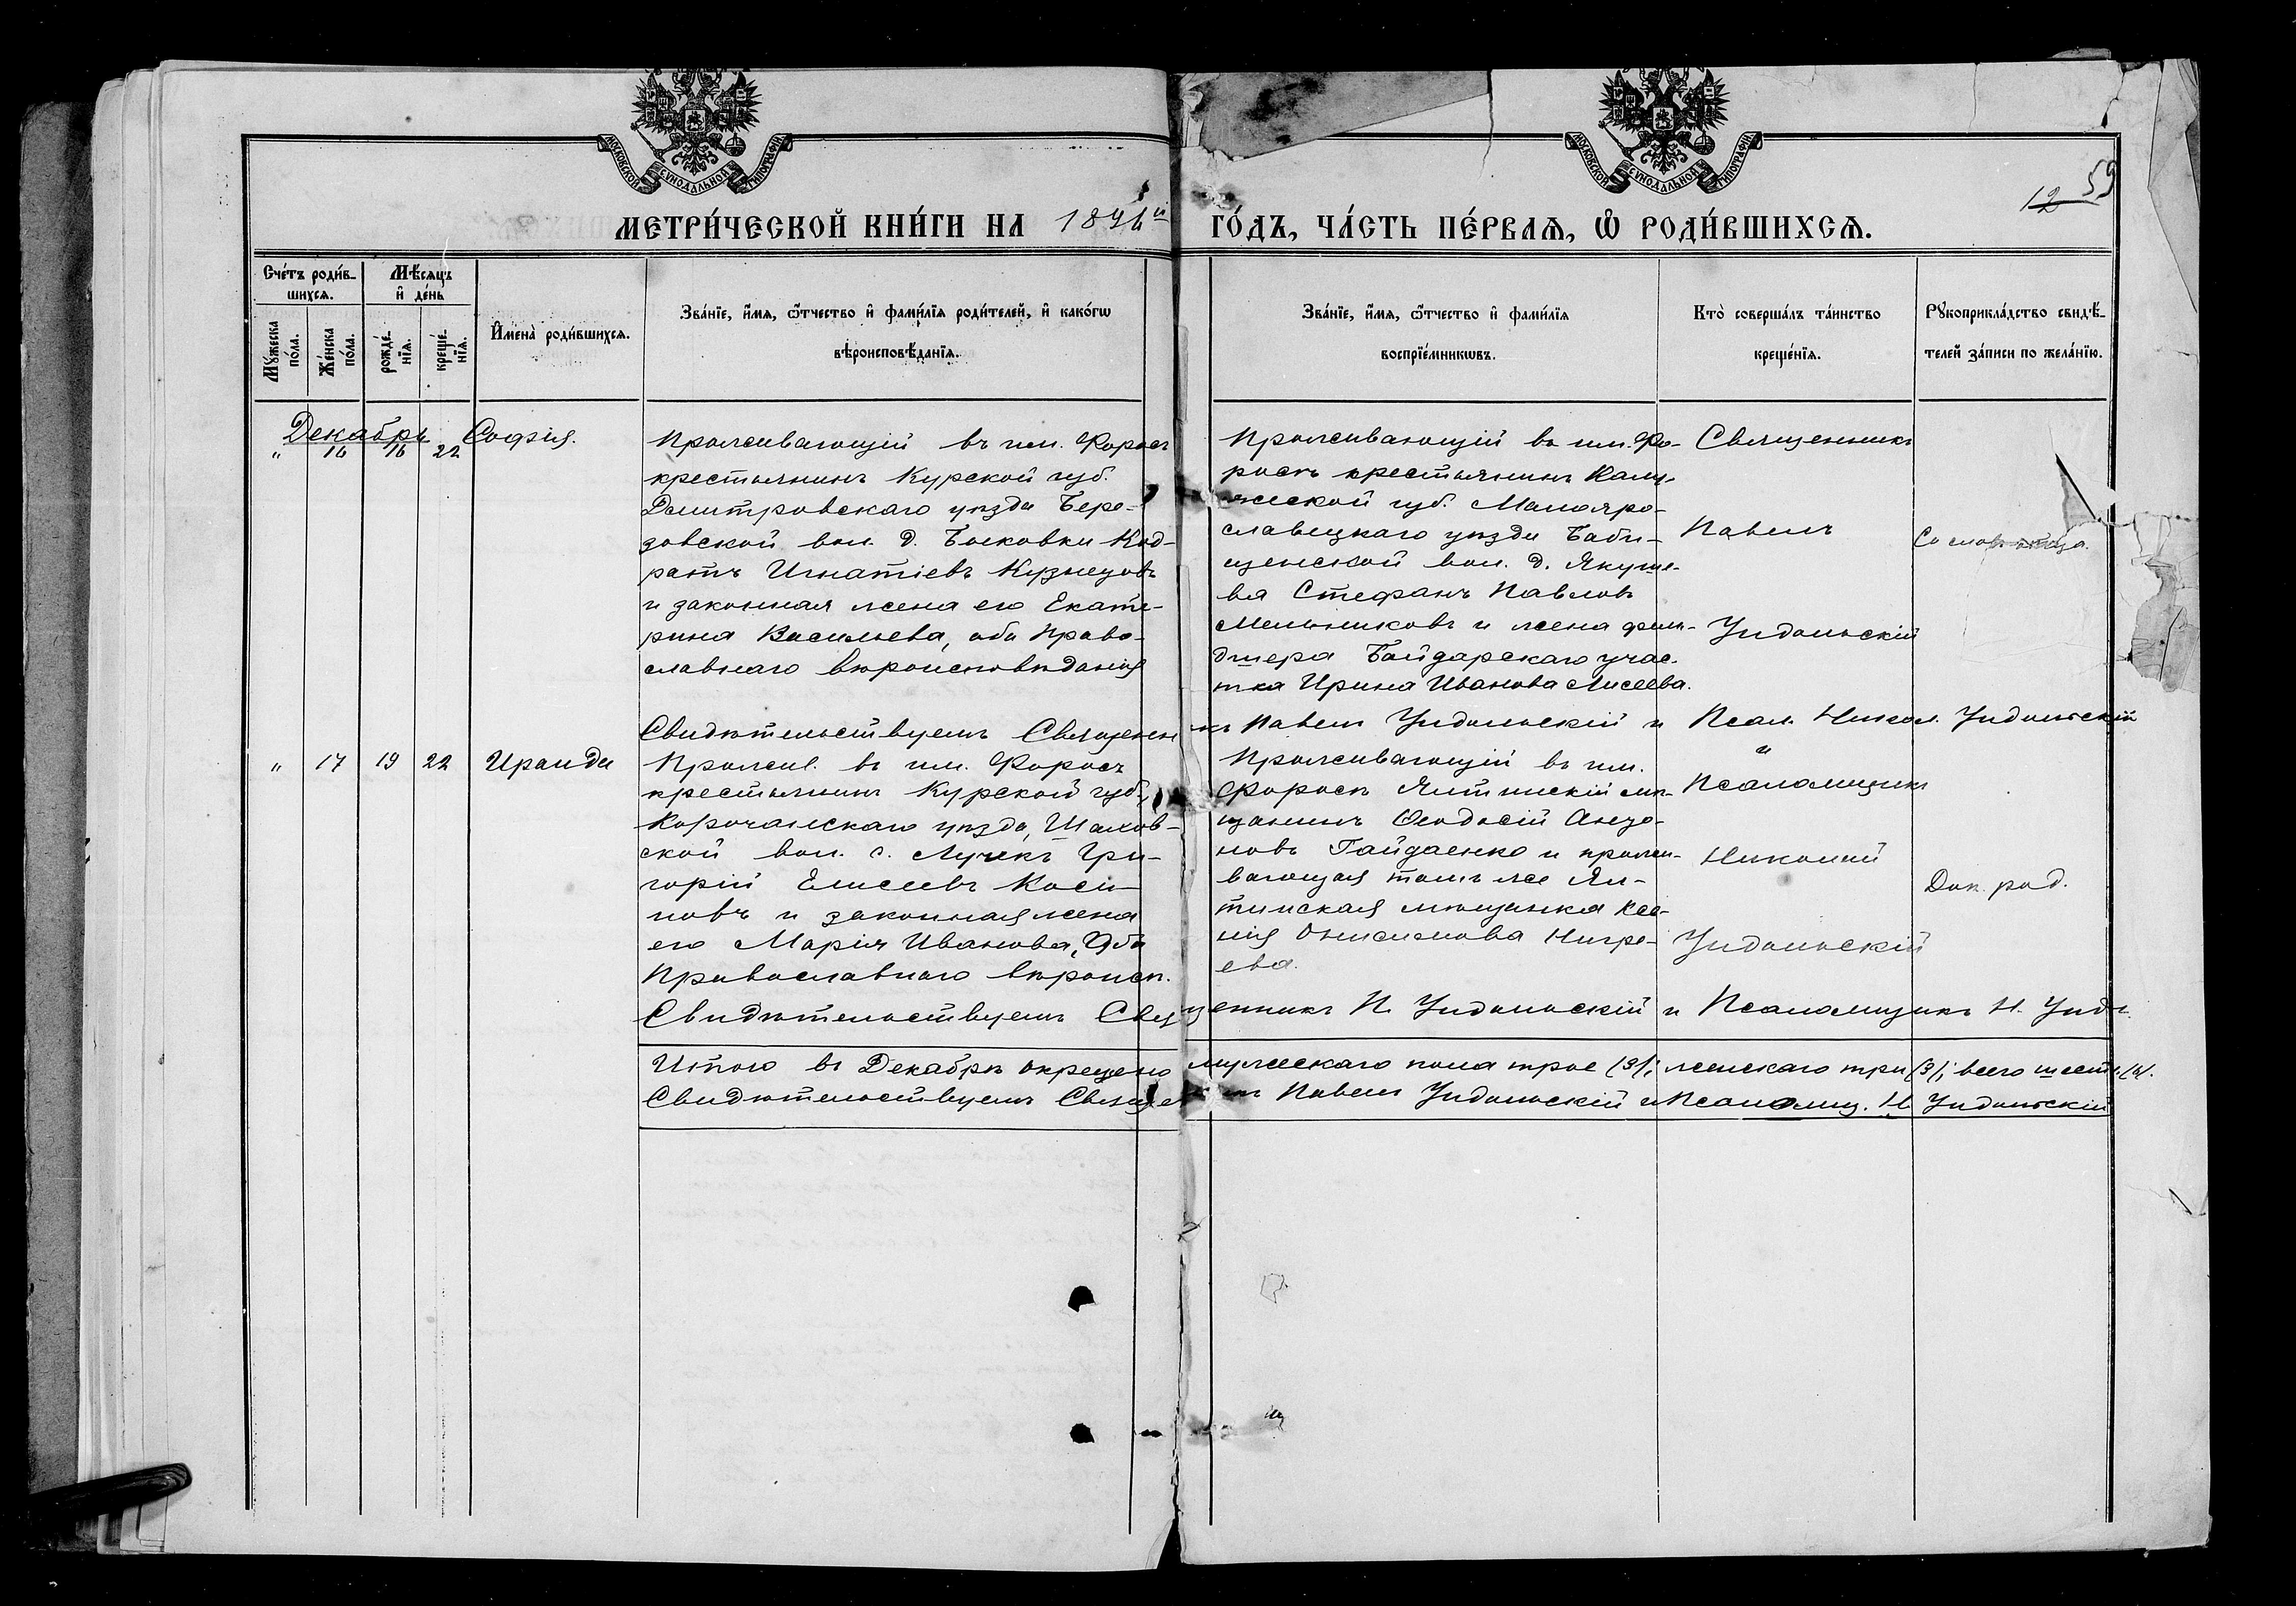 МОСКОВСКОЙ СѴНОДАЛЬНОЙ ТИПОГРАФІИ
МОСКОВСКОЙ СѴНОДАЛЬНОЙ ТИПОГРАФІИ
12 59
МЕТРИ́ЧЕСКОЙ КНИ́ГИ НА 1896й ГО́ДЪ, ЧА́СТЬ ПЕ́РВАѦ, Ѡ҆ РОДИ́ВШИХСѦ.
Сче́тъ роди́в-
шихсѧ.
Мѣ́сѧцъ
и҆ де́нь
Мꙋ́жеска
по́ла.
Же́нска
по́ла.
рожде́-
нїѧ.
креще́-
нїѧ.
И҆мена̀ роди́вшихсѧ.
Зва́нїе, и҆́мѧ, ѻ҆́тчество и҆ фами́лїѧ роди́телей, и҆ како́гѡ
вѣроисповѣ́данїѧ.
Зва́нїе, и҆́мѧ, ѻ҆́тчество и҆ фами́лїѧ
воспрїе́мникѡвъ.
Кто̀ соверша́лъ та́инство
креще́нїѧ.
Рꙋкоприкла́дство свидѣ́-
телей за́писи по жела́нїю.
Декабрь
" 16 16 22 Софія.
Проживающій въ им. Форосъ
крестьянинъ Курской губ.
Дмитровскаго уѣзда Бере-
зовской вол. д. Код-
ратъ Игнатіевъ Кузнецовъ
и законная жена его Екате-
рина Васильева, оба право-
славнаго вѣроисповѣданія
Проживающій въ им. Фо-
росъ крестьянинъ Калу-
жской губ. Малояро-
славецкаго уѣзда Баби-
ченской вол. д. Якуше-
ва Стефанъ Павловъ
Мельниковъ и жена фель-
дшера Байдарскаго учас-
тка Ирина Иванова
Священникъ
Павелъ
Ундольскій
Со слов отца.
Свидѣтельствуемъ Священникъ Павелъ Ундольскій и Псал. Никол. Ундольскій
" 17 19 22 Ираида
Прожив. въ им. Форосъ
крестьянинъ Курской губ.,
Корочанскаго уѣзда, Шахов-
ской вол. с. Лучекъ Гри-
горій Елисеевъ Коси-
новъ и законная жена
его Марія Иванова, Оба
Православнаго вѣроисп.
Проживающій въ им.
Форосъ Ялтинскій мѣ-
щанинъ Ѳеодосій
новъ Гайдаенко и прожи-
вающая тамъ же Ял-
тинская мѣщанка Ксе-
нія Онисимова Нигре-
ева.
и
Псаломщикъ
Николай
Ундольскій
Док. род.
Свидѣтельствуемъ Священникъ П. Ундольскій и Псаломщикъ Н. Ундо.
Итого въ Декабрѣ окрещено мужескаго пола трое (3), женскаго три (3), всего шесть (6).
Свидѣтельствуемъ Священникъ Павелъ Ундольскій и Псаломщ. Н. Ундольскій